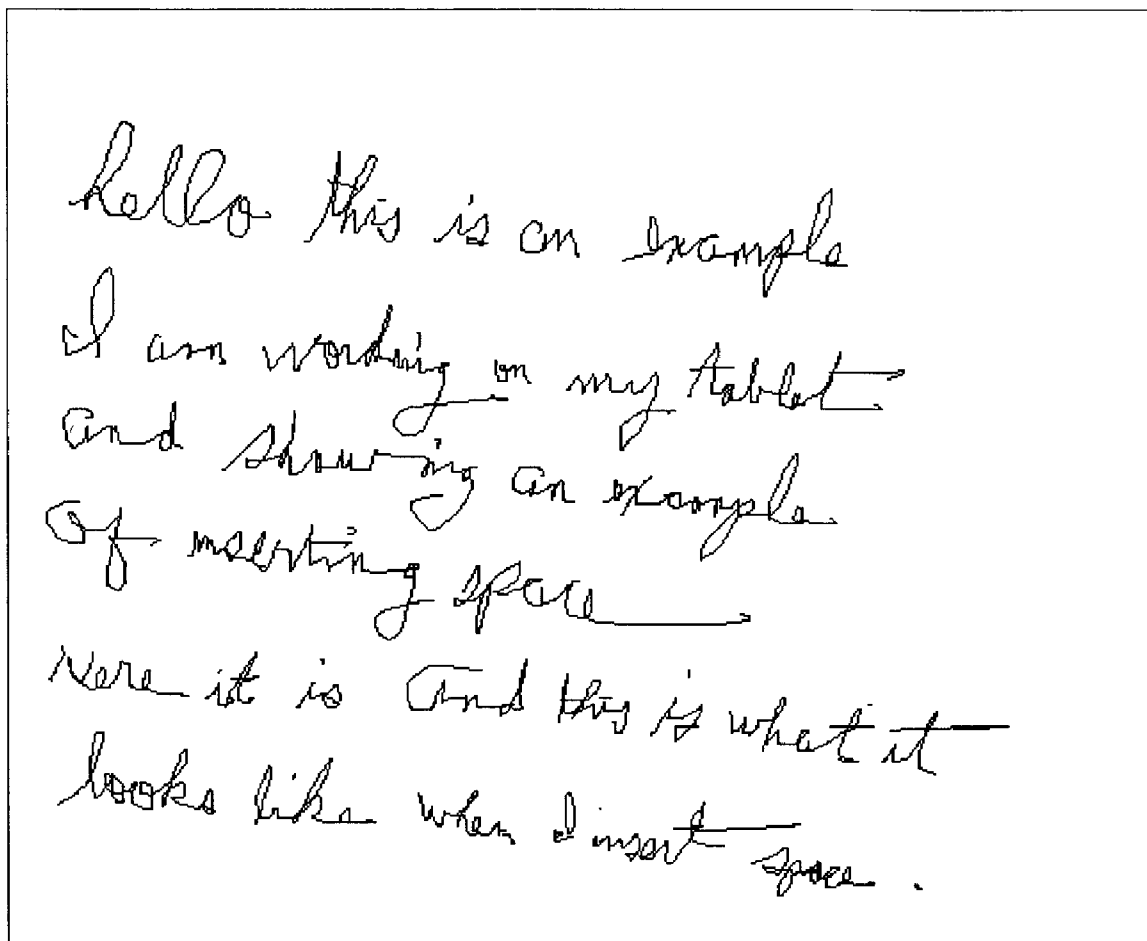 hello this is an example
I am wording on my tablet
and showing an example
of inserting space
Here it is And this is what it
looks like when I insert space.